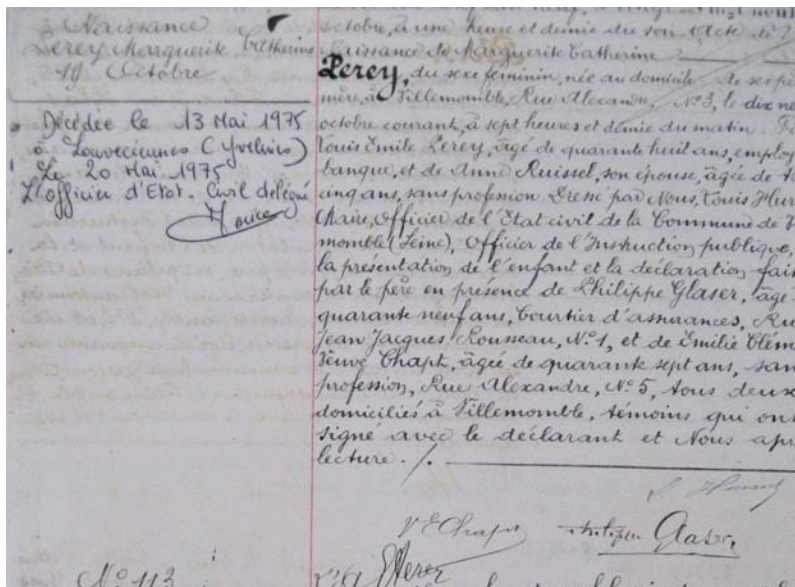 Naissance
Perey Marguerite Catherine
19 Octobre
Décédée le 13 Mai 1975
à Louveciennes (Yvelines)
Le 20 Mai 1975
L'officier d'Etat-Civil délégué
octobre, à une heure et demie du soir Acte de
Naissance de Marguerite Catherine
Perey, du sexe féminin, née au domicile de ses pè
mère, à Villemomble, Rue Alexandre, N°3, le dix ne
octobre courant, à sept heures et demie du matin. Fi
Louis Emile Perey, âgé de quarante huit ans, employ
banque, et de Anne Ruissel, son épouse, âgée de
cinq ans, sans profession Dressé par Nous, Louis
Maire, Officier de l'Etat civil de la Commune de V
momble (Seine), Officier de l'Instruction publique,
la présentation de l'enfant et la déclaration fai
par le père en présence de Philippe Glaser, âgé
quarante neuf ans, Courtier d'assurances, Ru
Jean Jacques Rousseau, N°1, et de Émilie Clém
Veuve Chapt, âgée de quarante sept ans, san
profession, Rue Alexandre, N°5, tous deux
domiciliés à Villemomble, témoins qui ont
signé avec le déclarant et Nous apr
lecture ./.
Vve Chapt Philippe Glaser
Perey
N° 113